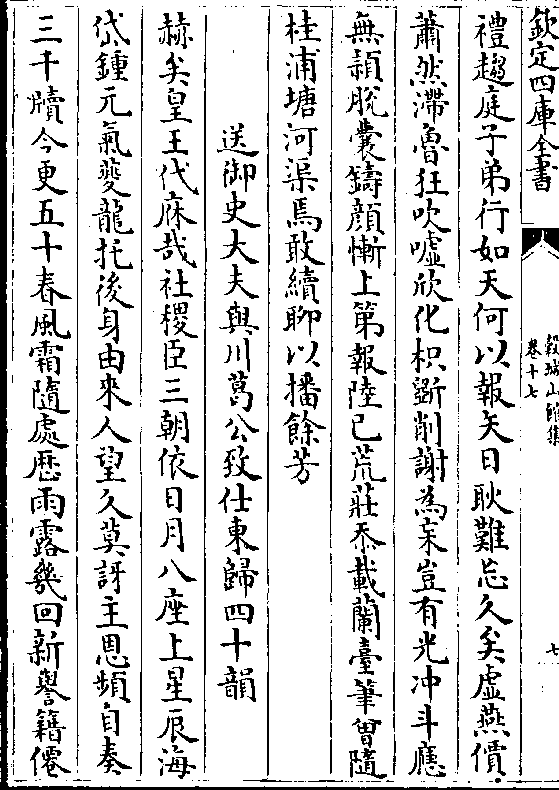 欽定四庫全書
穀城山館集
卷十七
七
禮趨庭子弟行如天何以報矢日耿難忘久矣虛燕價
蕭然滯魯狂吹噓欣化枳斵削謝為杗豈有光冲斗應
無頴脫囊鑄顔慚上第報陸已荒莊忝載蘭臺筆曾隨
桂浦塘河渠焉敢續聊以播餘芳
送御史大夫與川葛公致仕東歸四十韻
赫矣皇王代庥哉社稷臣三朝依日月八座上星辰海
岱鍾元氣夔龍托後身由來人望久莫訝主恩頻自奏
三千牘今更五十春風霜隨處歷雨露幾回新譽籍僊